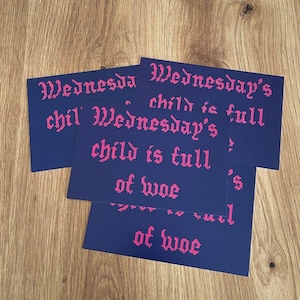 Wednesday's
child is full
of woe
Wednesda
chil
Wednesday's
child is full
's
of woe